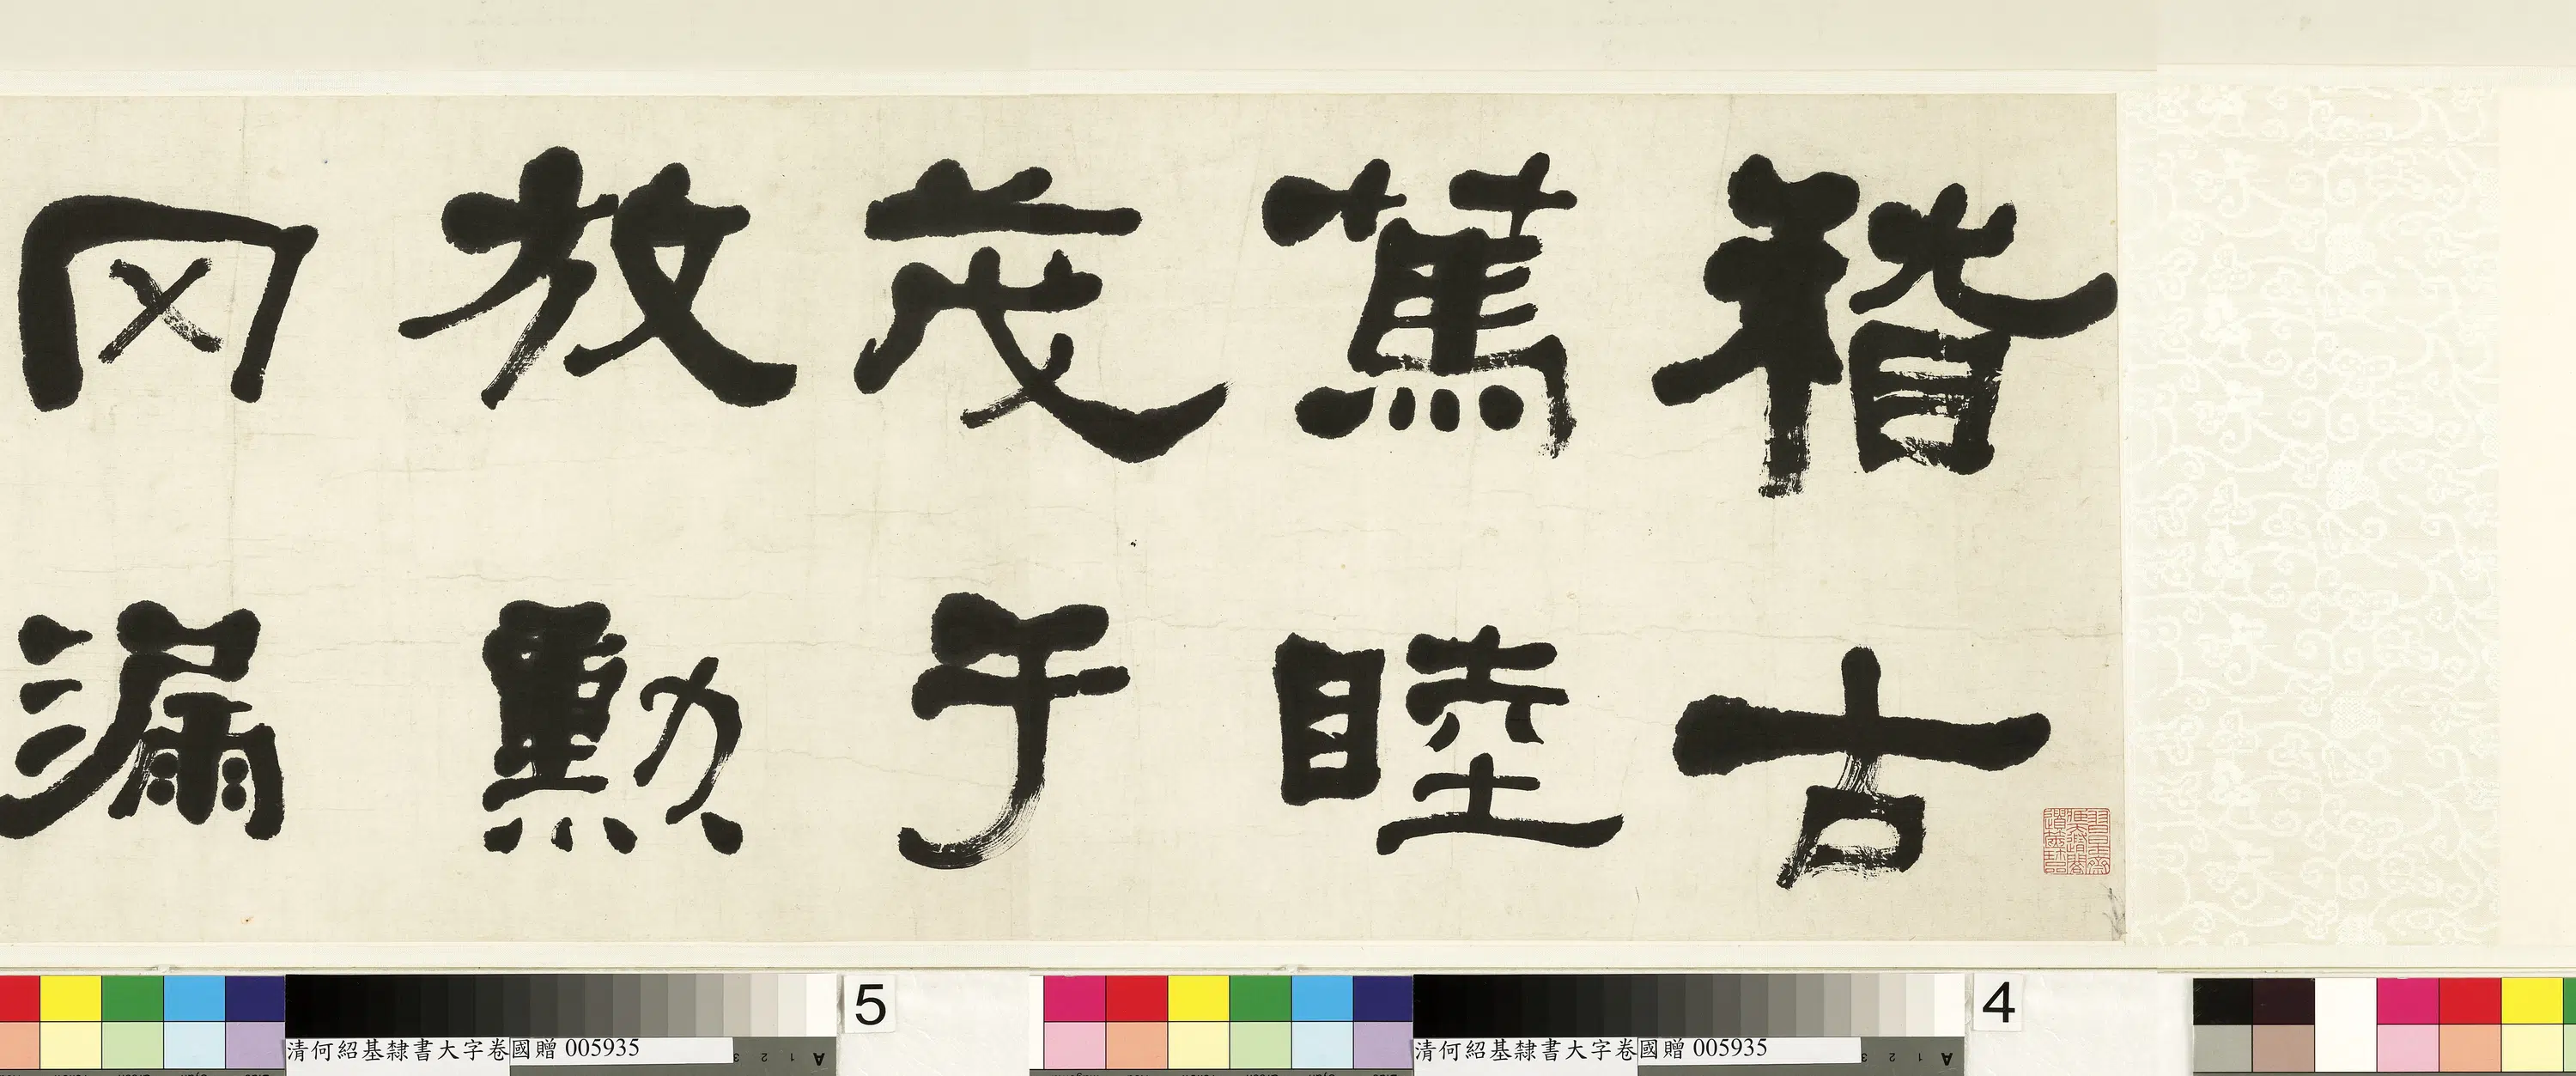 稽古
篤睦
茂于
放勳
网漏
4
5
清何紹基隸書大字卷國贈 005935
清何紹基隸書大字卷國贈 005935